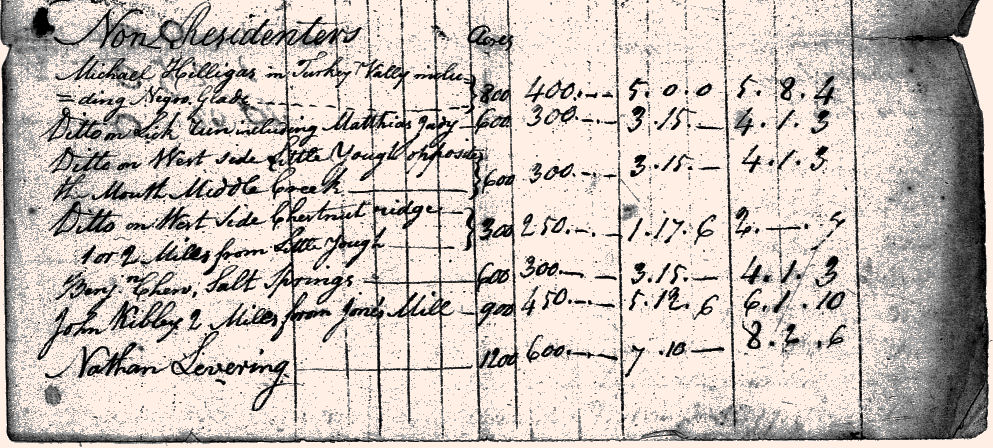 Non Residenters Acres
Michael Hilligas in Turkey Vally inclu-
=ding Negro Glade 800 400.-.- 5.0.0 5.8.4
Ditto on Lick run including Matthias 600 300.-.- 3.15.- 4.1.3
Ditto on West side Little Yough opposite
the Mouth Middle Creek 600 300.-.- 3.15.- 4.1.3
Ditto on West side Chestnut ridge
1 or 2 Miles from Little Yough 300 250.-.- 1.17.6 2.-.7
Benj.n Chew, Salt Springs 600 300.-.- 3.15.- 4.1.3
John Kibley 2 Miles from Jones Mill 900 450.-.- 5.12.6 6.1.10
Nathan Levering 1200 600.-.- 7.10.- 8.2.6